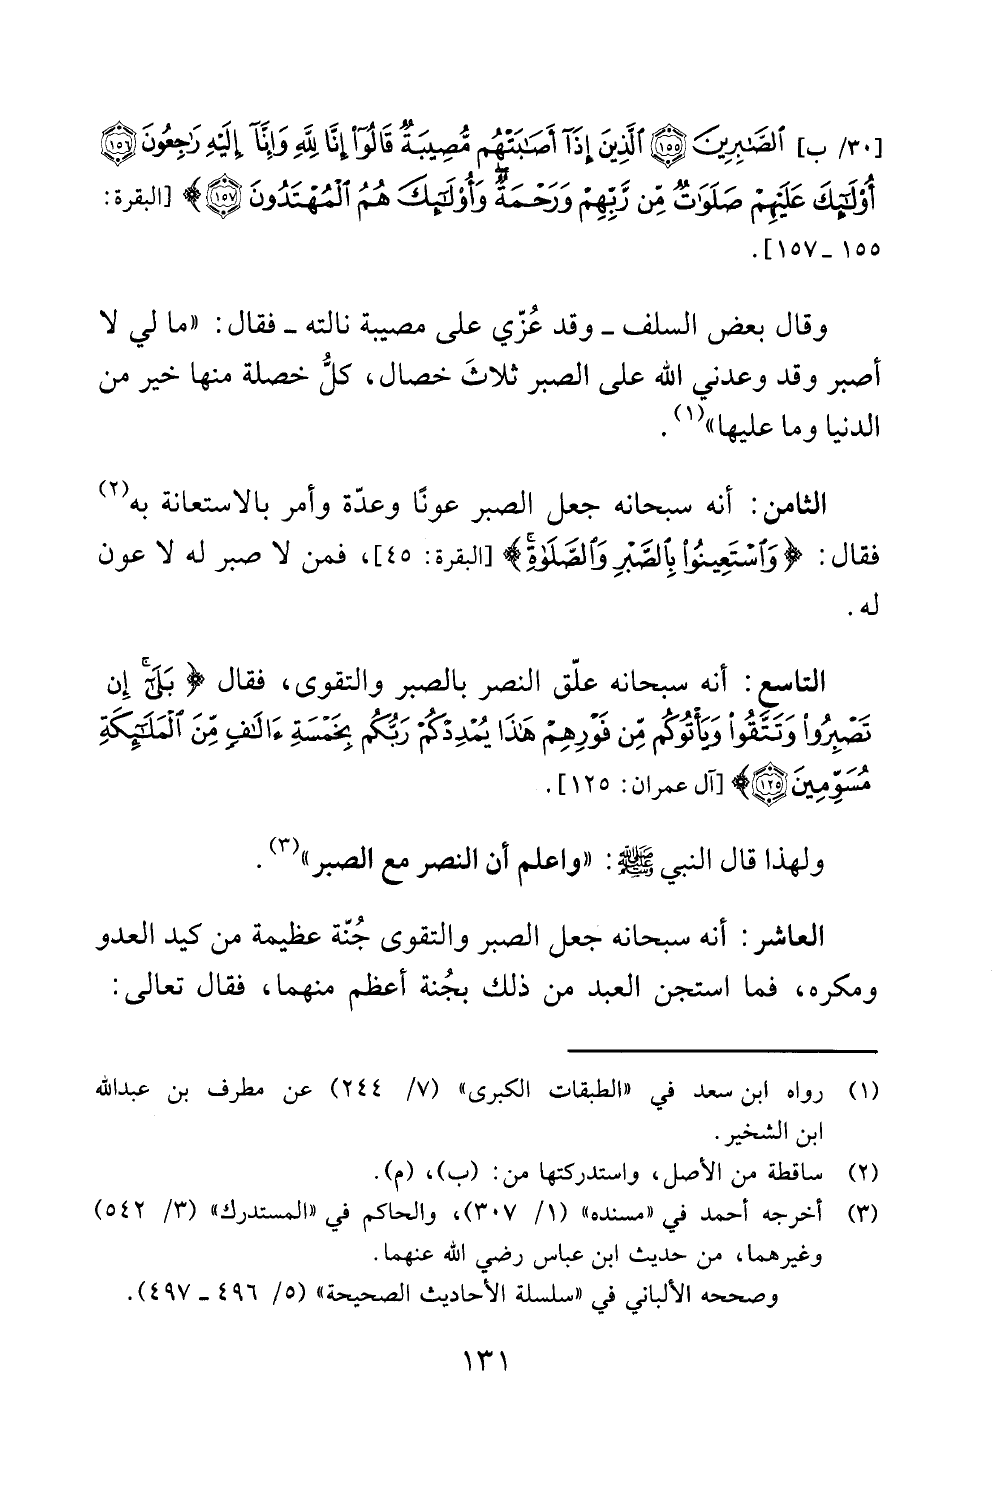 [٣٠/ ب] ٱلصَّٰبِرِينَ ١٥٥ ٱلَّذِينَ إِذَآ أَصَٰبَتْهُم مُّصِيبَةٌ قَالُوٓا۟ إِنَّا لِلَّهِ وَإِنَّآ إِلَيْهِ رَٰجِعُونَ ١٥٦
أُو۟لَٰٓئِكَ عَلَيْهِمْ صَلَوَٰتٌ مِّن رَّبِّهِمْ وَرَحْمَةٌ ۖ وَأُو۟لَٰٓئِكَ هُمُ ٱلْمُهْتَدُونَ ١٥٧ ﴾ [البقرة:
١٥٥ ـ ١٥٧].
وقال بعض السلف ـ وقد عُزّي على مصيبة نالته ـ فقال: «ما لي لا
أصبر وقد وعدني الله على الصبر ثلاثَ خصال، كلُّ خصلة منها خير من
الدنيا وما عليها»(١).
الثامن: أنه سبحانه جعل الصبر عونًا وعدّة وأمر بالاستعانة به(٢)
فقال: ﴿ وَٱسْتَعِينُوا۟ بِٱلصَّبْرِ وَٱلصَّلَوٰةِ ۚ ﴾ [البقرة: ٤٥]، فمن لا صبر له لا عون
له.
التاسع: أنه سبحانه علّق النصر بالصبر والتقوى، فقال ﴿ بَلَىٰٓ ۚ إِن
تَصْبِرُوا۟ وَتَتَّقُوا۟ وَيَأْتُوكُم مِّن فَوْرِهِمْ هَٰذَا يُمْدِدْكُمْ رَبُّكُم بِخَمْسَةِ ءَالَٰفٍ مِّنَ ٱلْمَلَٰٓئِكَةِ
مُسَوِّمِينَ ١٢٥ ﴾ [آل عمران: ١٢٥].
ولهذا قال النبي ﷺ: «واعلم أن النصر مع الصبر»(٣).
العاشر: أنه سبحانه جعل الصبر والتقوى جُنّة عظيمة من كيد العدو
ومكره، فما استجن العبد من ذلك بجُنة أعظم منهما، فقال تعالى:
(١) رواه ابن سعد في «الطبقات الكبرى» (٧/ ٢٤٤) عن مطرف بن عبدالله
ابن الشخير.
(٢) ساقطة من الأصل، واستدركتها من: (ب)، (م).
(٣) أخرجه أحمد في «مسنده» (١/ ٣٠٧)، والحاكم في «المستدرك» (٣/ ٥٤٢)
وغيرهما، من حديث ابن عباس رضي الله عنهما.
وصححه الألباني في «سلسلة الأحاديث الصحيحة» (٥/ ٤٩٦ ـ ٤٩٧).
١٣١